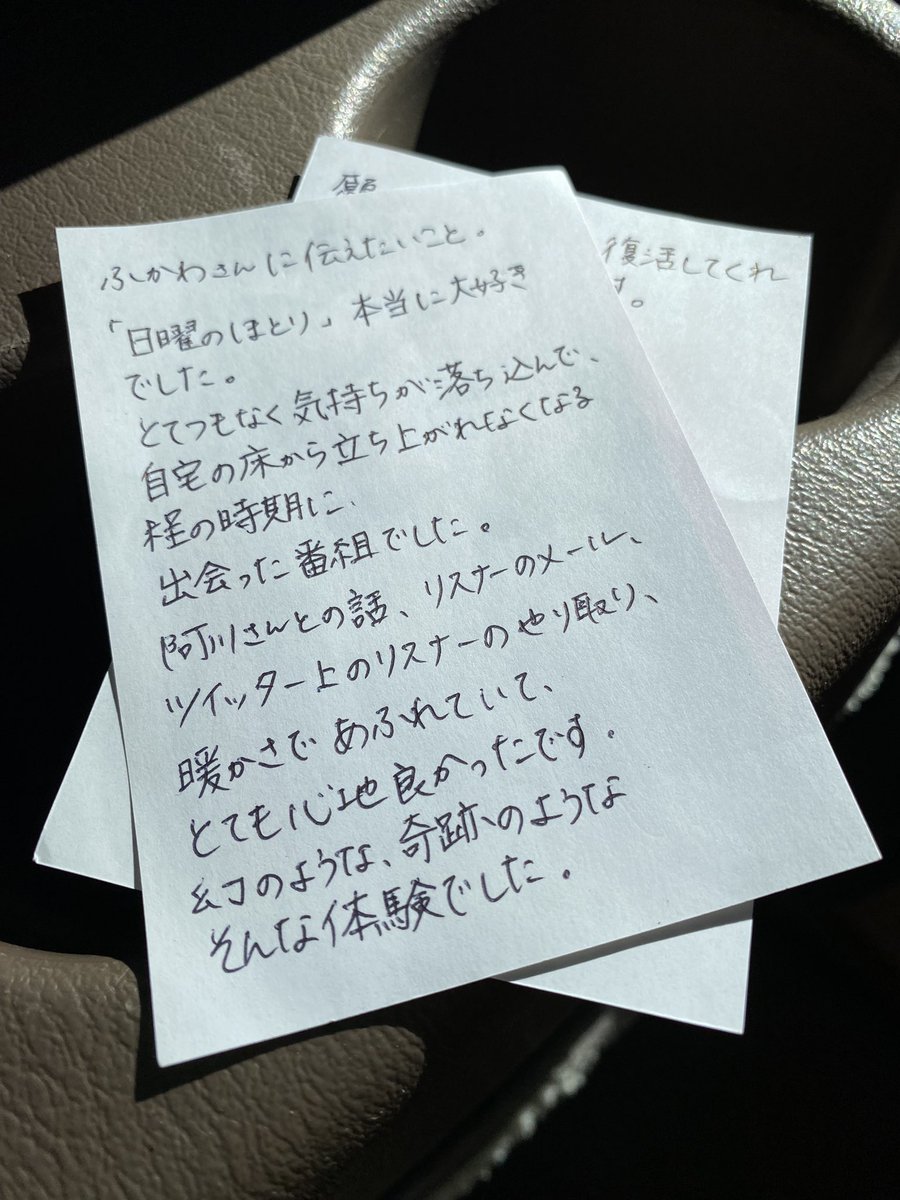 ふかわさんに伝えたいこと。
「日曜のほとり」本当に大好き
でした。
とてつもなく気持ちが落ち込んで、
自宅の床から立ち上がれなくなる
程の時期に、
出会った番組でした。
阿川さんとの話、リスナーのメール、
ツイッター上のリスナーのやり取り、
暖かさであふれていて、
とても心地良かったです。
幻のような、奇跡のような
そんな体験でした。
復活してくれ
す。